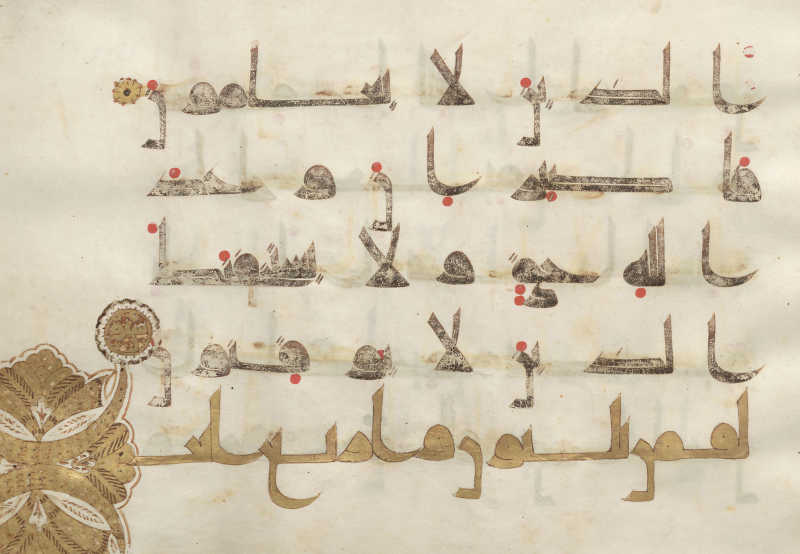 الذين لا يعلمون
فاصبر ان وعد
الله حق ولا يستخفنك
الذين لا يوقنون
لقمن ثلثون واربع